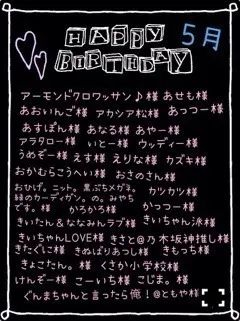 HAPPY
BIRTHDAY
5月
アーモンドクロワッサン♪様 あせも様
あおいんご様 アカシア松様 あっつー様
あすぽん様 あなる様 あやー様
アラタロー様 いとー様 ウッディー様
うめぞー様 えす様 えりな様 カズキ様
おかむらこうへい様 おさのさん様
おせげ。ニット。黒ぶちメガネ。
緑のカーディガン。の。みやち
です。様 かろかろ様 かつつー様
カツカツ様
きいたん&ななみんラブ様 きいちゃん派様
きいちゃんLOVE様 きさと@乃木坂神推し様
きたぐに様 きぬばりあつし様 きもっち様
きょこたん。様 くさか小学校様
けんぞー様 こーいち様 こじま。様
ぐんまちゃんと言ったら俺!@ともや様